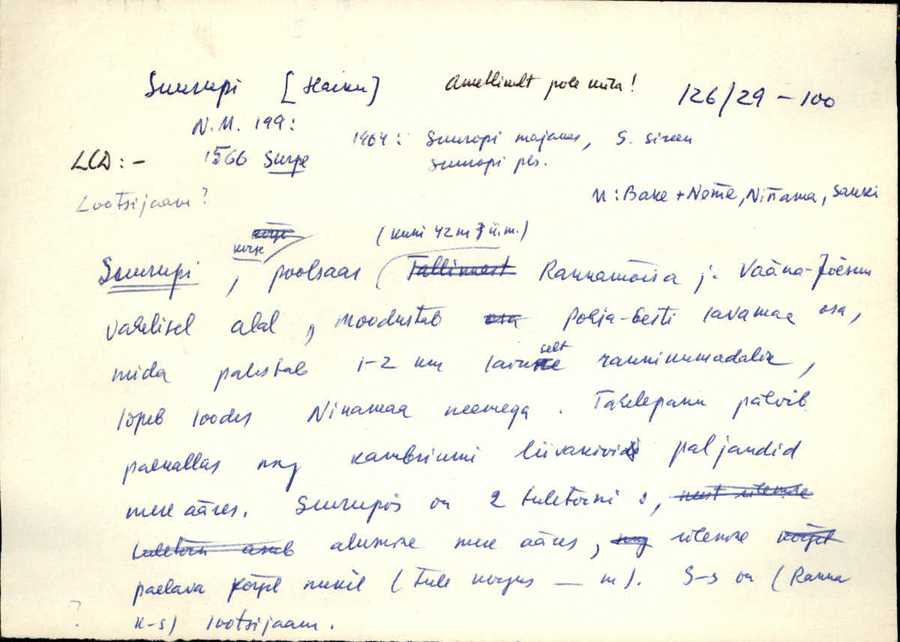 Suurupi [Harku] Ametlikult pole küla! 126/29 - 100
N.M. 199: 1964: Suurupi majakas, S. sireen
LCD: - 1566 Surpe Suurupi pls.
Lootsijaam?
M: Bake + Nome, Ninama, Sauki
kõrge (kuni 42 m ü.m.)
Suurupi, poolsaar (Tallinnast Rannamõisa j. Vääna-Jõesuu
vahelisel alal, moodustab osa Põhja-Eesti lavamaa osa,
mida palistab 1-2 km laiuselt rannikumadalik,
lõpeb loodes Ninamaa neemega. Tähelepanu pälvib
paekallas ning kambriumi liivakivi paljandid
mere ääres. Suurupis on 2 tuletorni :, neist ülemise
tuletorn asub alumise mere ääres, ning ülemise kõrgel
paelava kõrgel nukil (tule kõrgus — m). S-s on (Ranna
? k-s) lootsijaam.